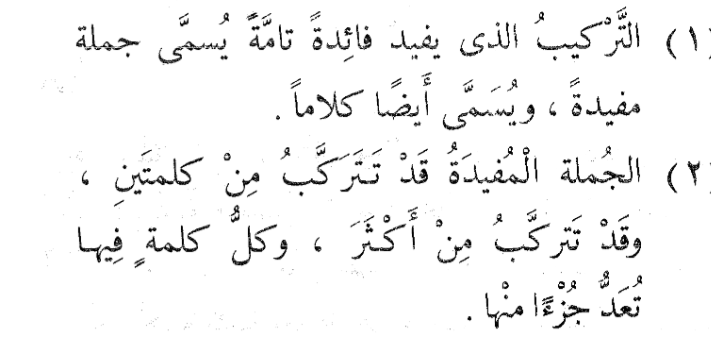 (١) التَّرْكيبُ الذى يفيد فائِدةً تامَّةً يُسمَّى جملة
مفيدةً ، ويُسَمَّى أَيضًا كلاماً .
(٢) الجُملة الْمُفيدَةُ قَدْ تَتَرَكَّبُ مِنْ كلمتَينِ ،
وقَدْ تَتركَّبُ مِنْ أَكْثَرَ ، وكلُّ كلمةٍ فِيها
تُعَدُّ جُزْءًا منْها .